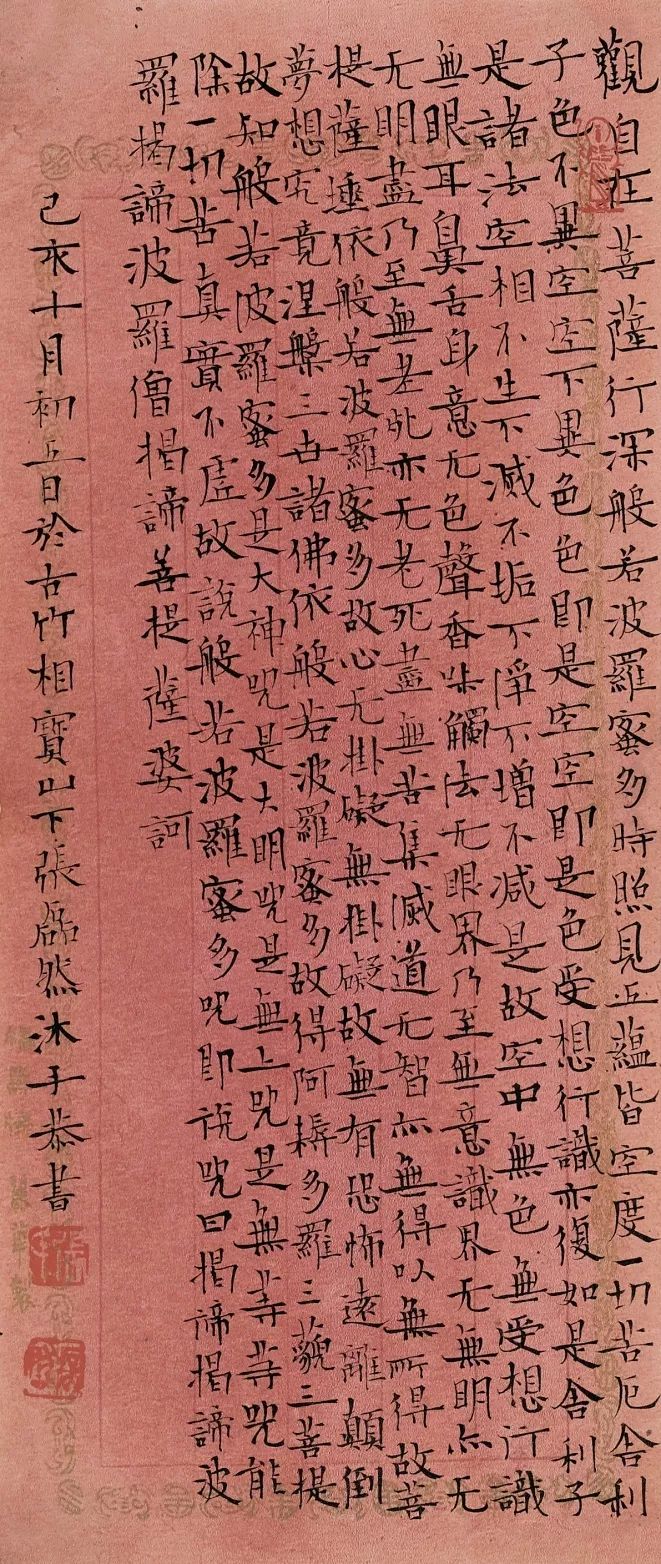 觀自在菩薩行深般若波羅蜜多時照見五蘊皆空度一切苦厄舍利
子色不異空空不異色色即是空空即是色受想行識亦復如是舍利子
是諸法空相不生不滅不垢不淨不增不减是故空中無色無受想行識
無眼耳鼻舌身意无色聲香味觸法无眼界乃至無意識界无無明亦无
无明盡乃至無老死亦无老死盡無苦集滅道无智亦無得以無所得故菩
提薩埵依般若波羅蜜多故心无掛礙無掛礙故無有恐怖遠離顛倒
夢想究竟涅槃三世諸佛依般若波羅蜜多故得阿耨多羅三藐三菩提
故知般若波羅蜜多是大神咒是大明咒是無上咒是無等等咒能
除一切苦真實不虛故說般若波羅蜜多咒即說咒曰揭諦揭諦波
羅揭諦波羅僧揭諦菩提薩婆訶
己亥十月初五日於古竹相寶山下張磊然沐手恭書